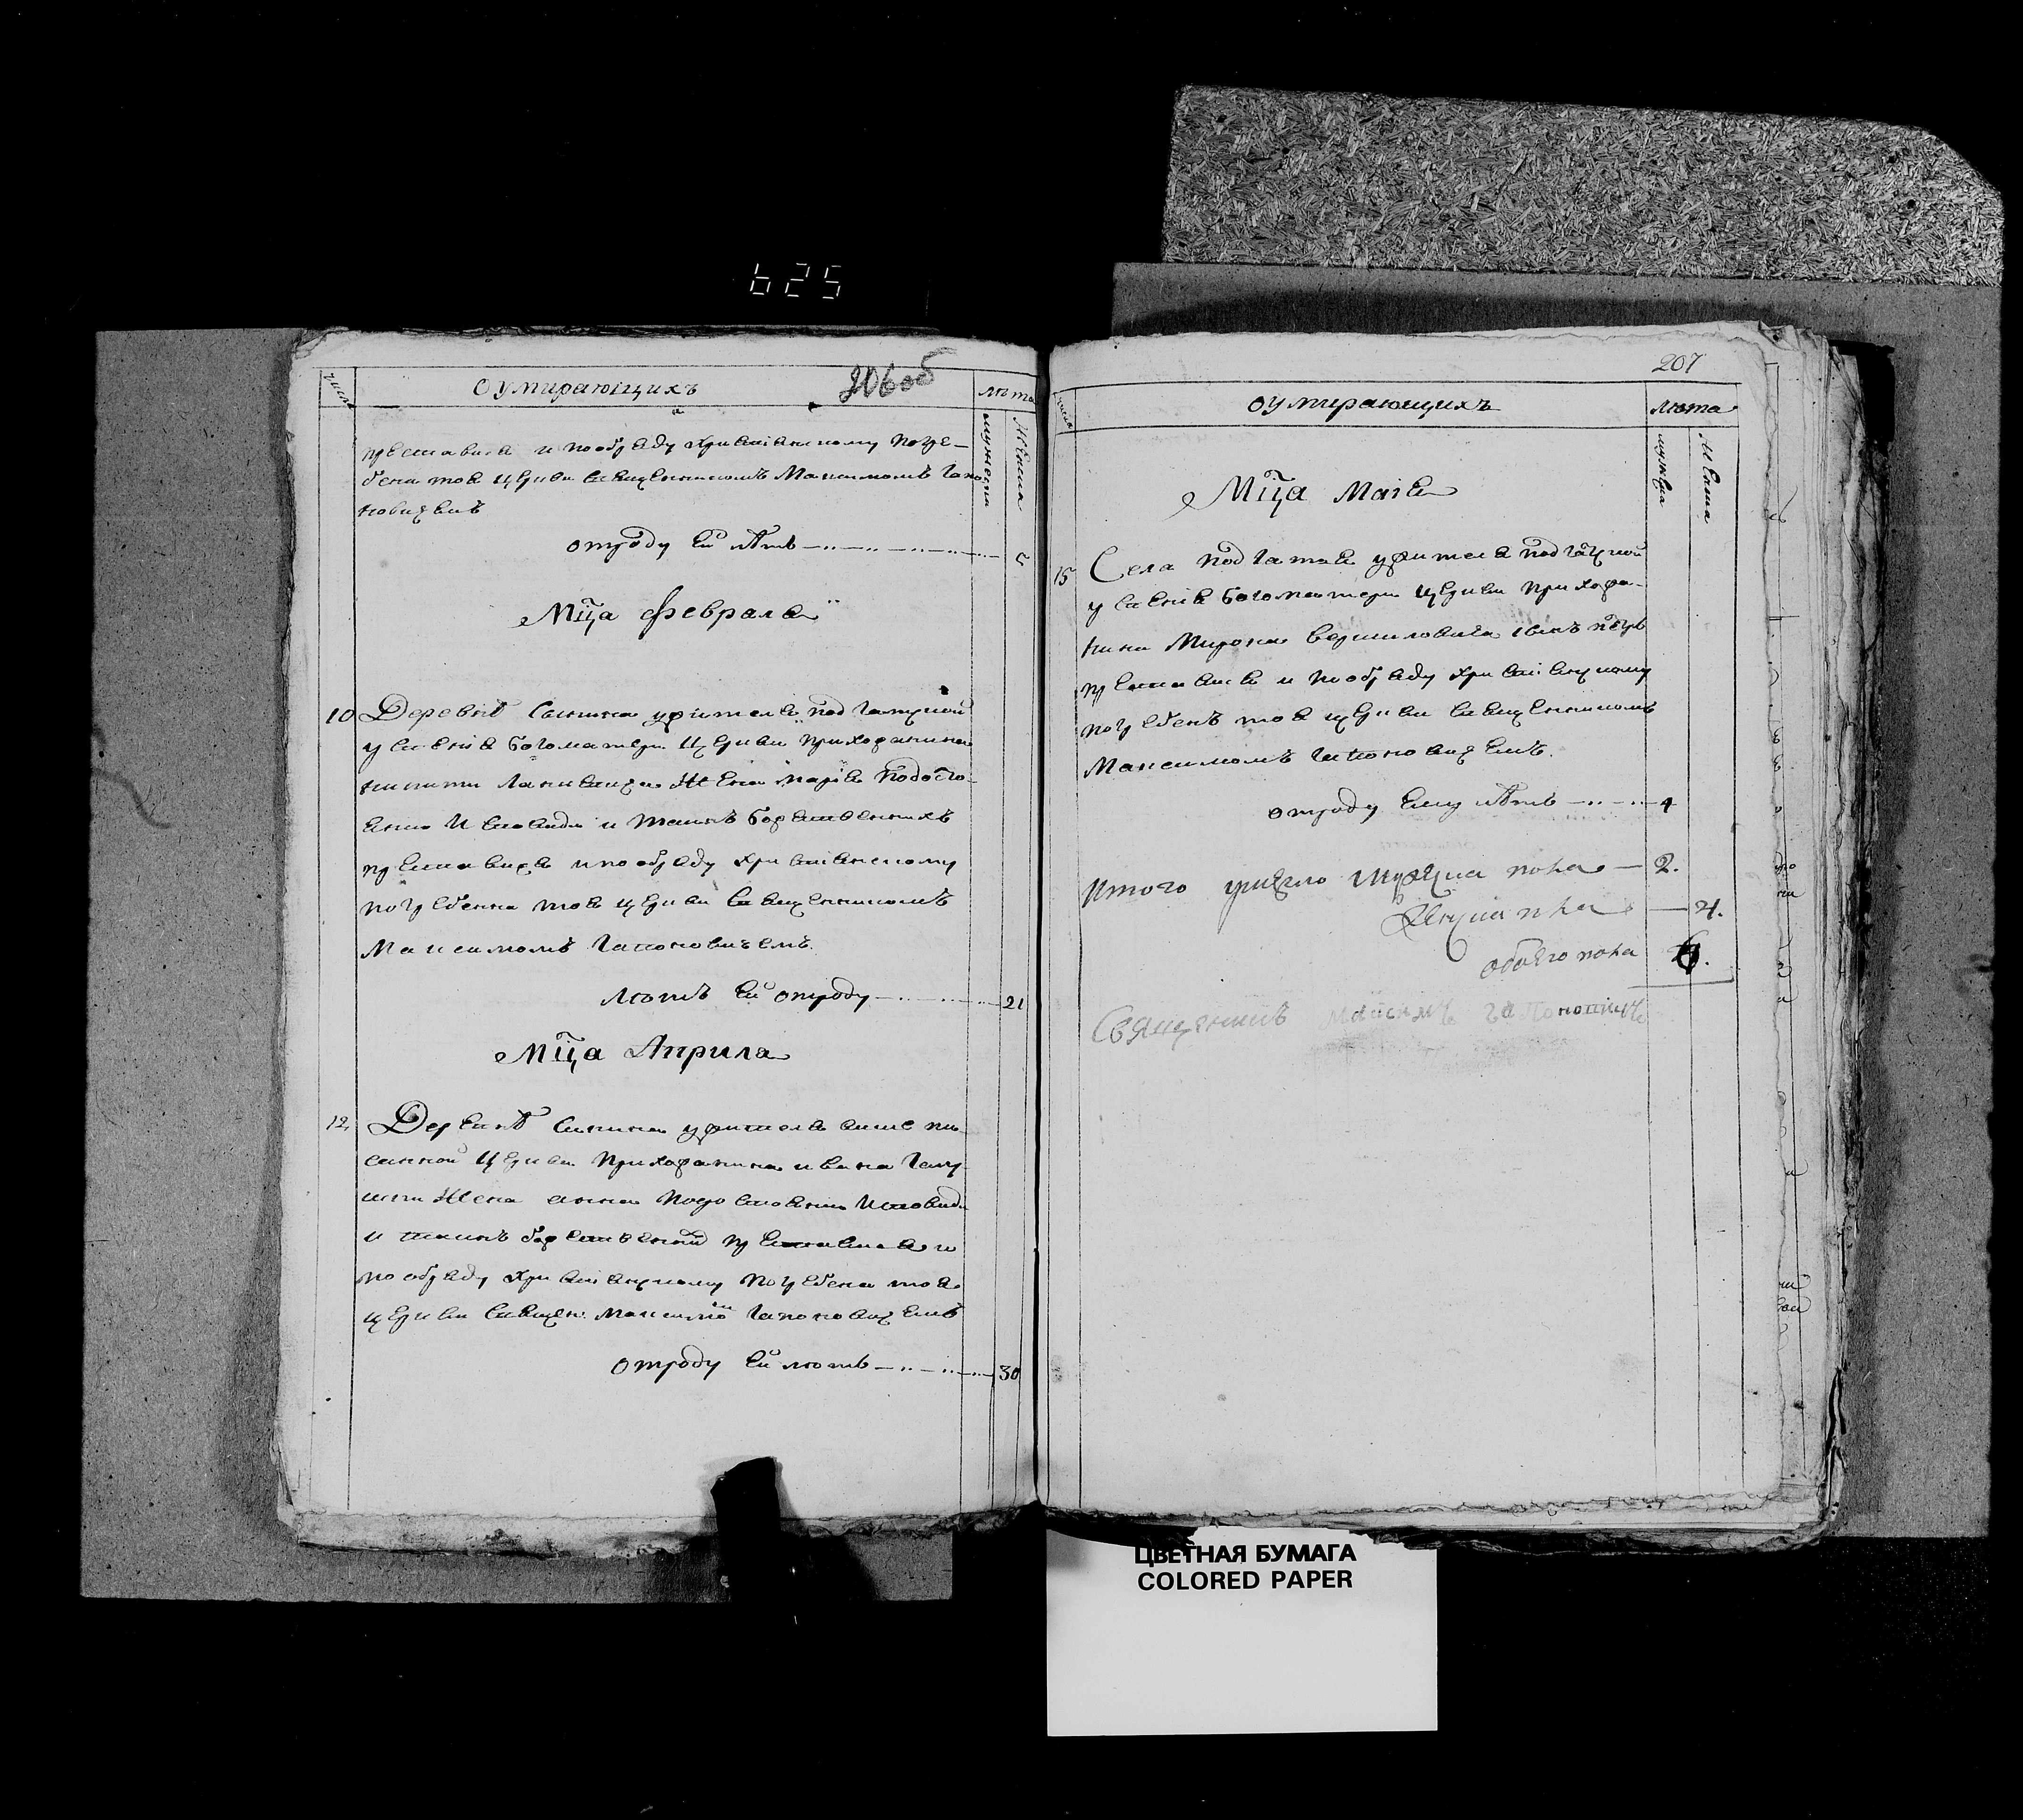 625
206об
числа
Оумирающихъ
лѣта
мужеска
женска
преставися и пообряду христианскому погре-
бена тоя церкви священникомъ Максимомъ Гапо
новичемъ
отроду ей лѣтъ
Мца Февраля
10 Деревнѣ жителя Подгатской
успения Богоматери церкви прихожанина
Никити жена Мария подосто-
янию исповеди и таинъ Божественнихъ
преставися и пообряду християнскому
погребенна тоя церкви священникомъ
Максимомъ Гапоновичемъ
лѣтъ ей отроду 21
Мца Априля
12 Деревнѣ жителя више пи-
санной церкви прихожанина Ивана
жена Анна исповеди
и таинъ божественнихъ преставися и
пообряду християнскому погребена тоя
церкви священ: Максимомъ Гапоновичемъ
отроду ей лѣтъ 30
207
числа
Оумирающихъ
лѣта
мужеска
женска
Мца Маія
15 Села Подгатая жителя Подгацкой
успения Богоматери церкви прихожа-
нина Мирона синъ Петръ
преставися и пообряду християнскому
погребенъ тоя церкви священникомъ
Максимомъ Гапоновичемъ.
отроду ему лѣтъ 4
Итого умерло мужеска пола 2.
женска пола 4.
обоего пола 6.
Священникъ Максимъ Гапоновичъ
ЦВЕТНАЯ БУМАГА
COLORED PAPER